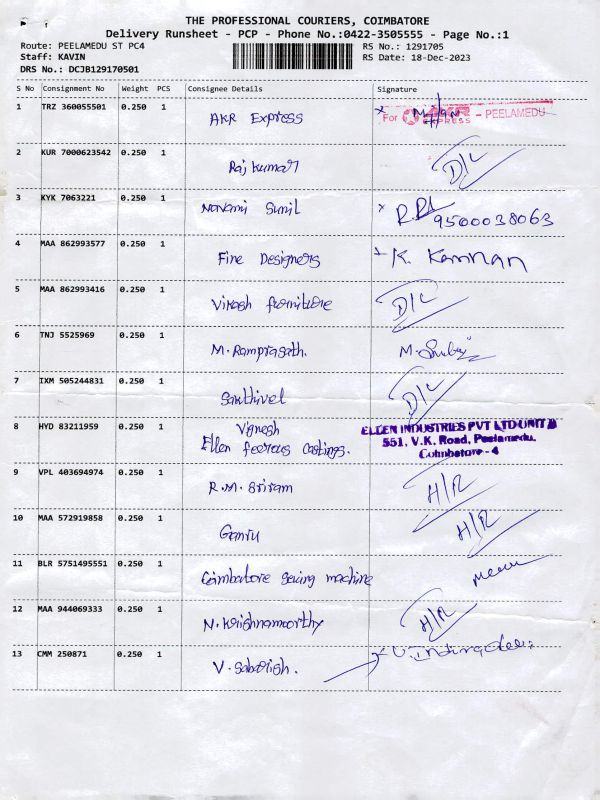 THE PROFESSIONAL COURIERS, COIMBATORE
Delivery Runsheet - PCP - Phone No.:0422-3505555 - Page No.:1
Route: PEELAMEDU ST PC4 RS No.: 1291705
Staff: KAVIN RS Date: 18-Dec-2023
DRS No.: DCJB129170501
S No Consignment No Weight PCS Consignee Details Signature
1 TRZ 360055501 0.250 1 AKR Express For AKR EXPRESS - PEELAMEDU
2 KUR 7000623542 0.250 1 Raj kumar D/L
3 KYK 7063221 0.250 1 Navami Sunil 9500038063
4 MAA 862993577 0.250 1 Fine Designers K. Kannan
5 MAA 862993416 0.250 1 Vikash furniture D/L
6 TNJ 5525969 0.250 1 M. Ramprasath. M.
7 IXM 505244831 0.250 1 Sakthivel D/L
8 HYD 83211959 0.250 1 Vignesh
Ellen feerous castings. ELLEN INDUSTRIES PVT LTD UNIT
551, V.K. Road, Peelamedu.
Coimbatore - 4
9 VPL 403694974 0.250 1 R.M. Sriram H/R
10 MAA 572919858 0.250 1 H/R
11 BLR 5751495551 0.250 1 Coimbatore sewing machine
12 MAA 944069333 0.250 1 N. Krishnamoorthy H/R
13 CMM 250871 0.250 1 V. Sabarish.